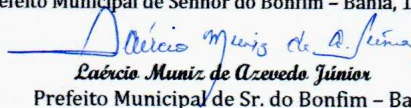 efeito Municipal de Senhor do Bonfim – Bahia, 1
Laércio Muniz de A. Júnior
Laércio Muniz de Azevedo Júnior
Prefeito Municipal de Sr. do Bonfim – Ba